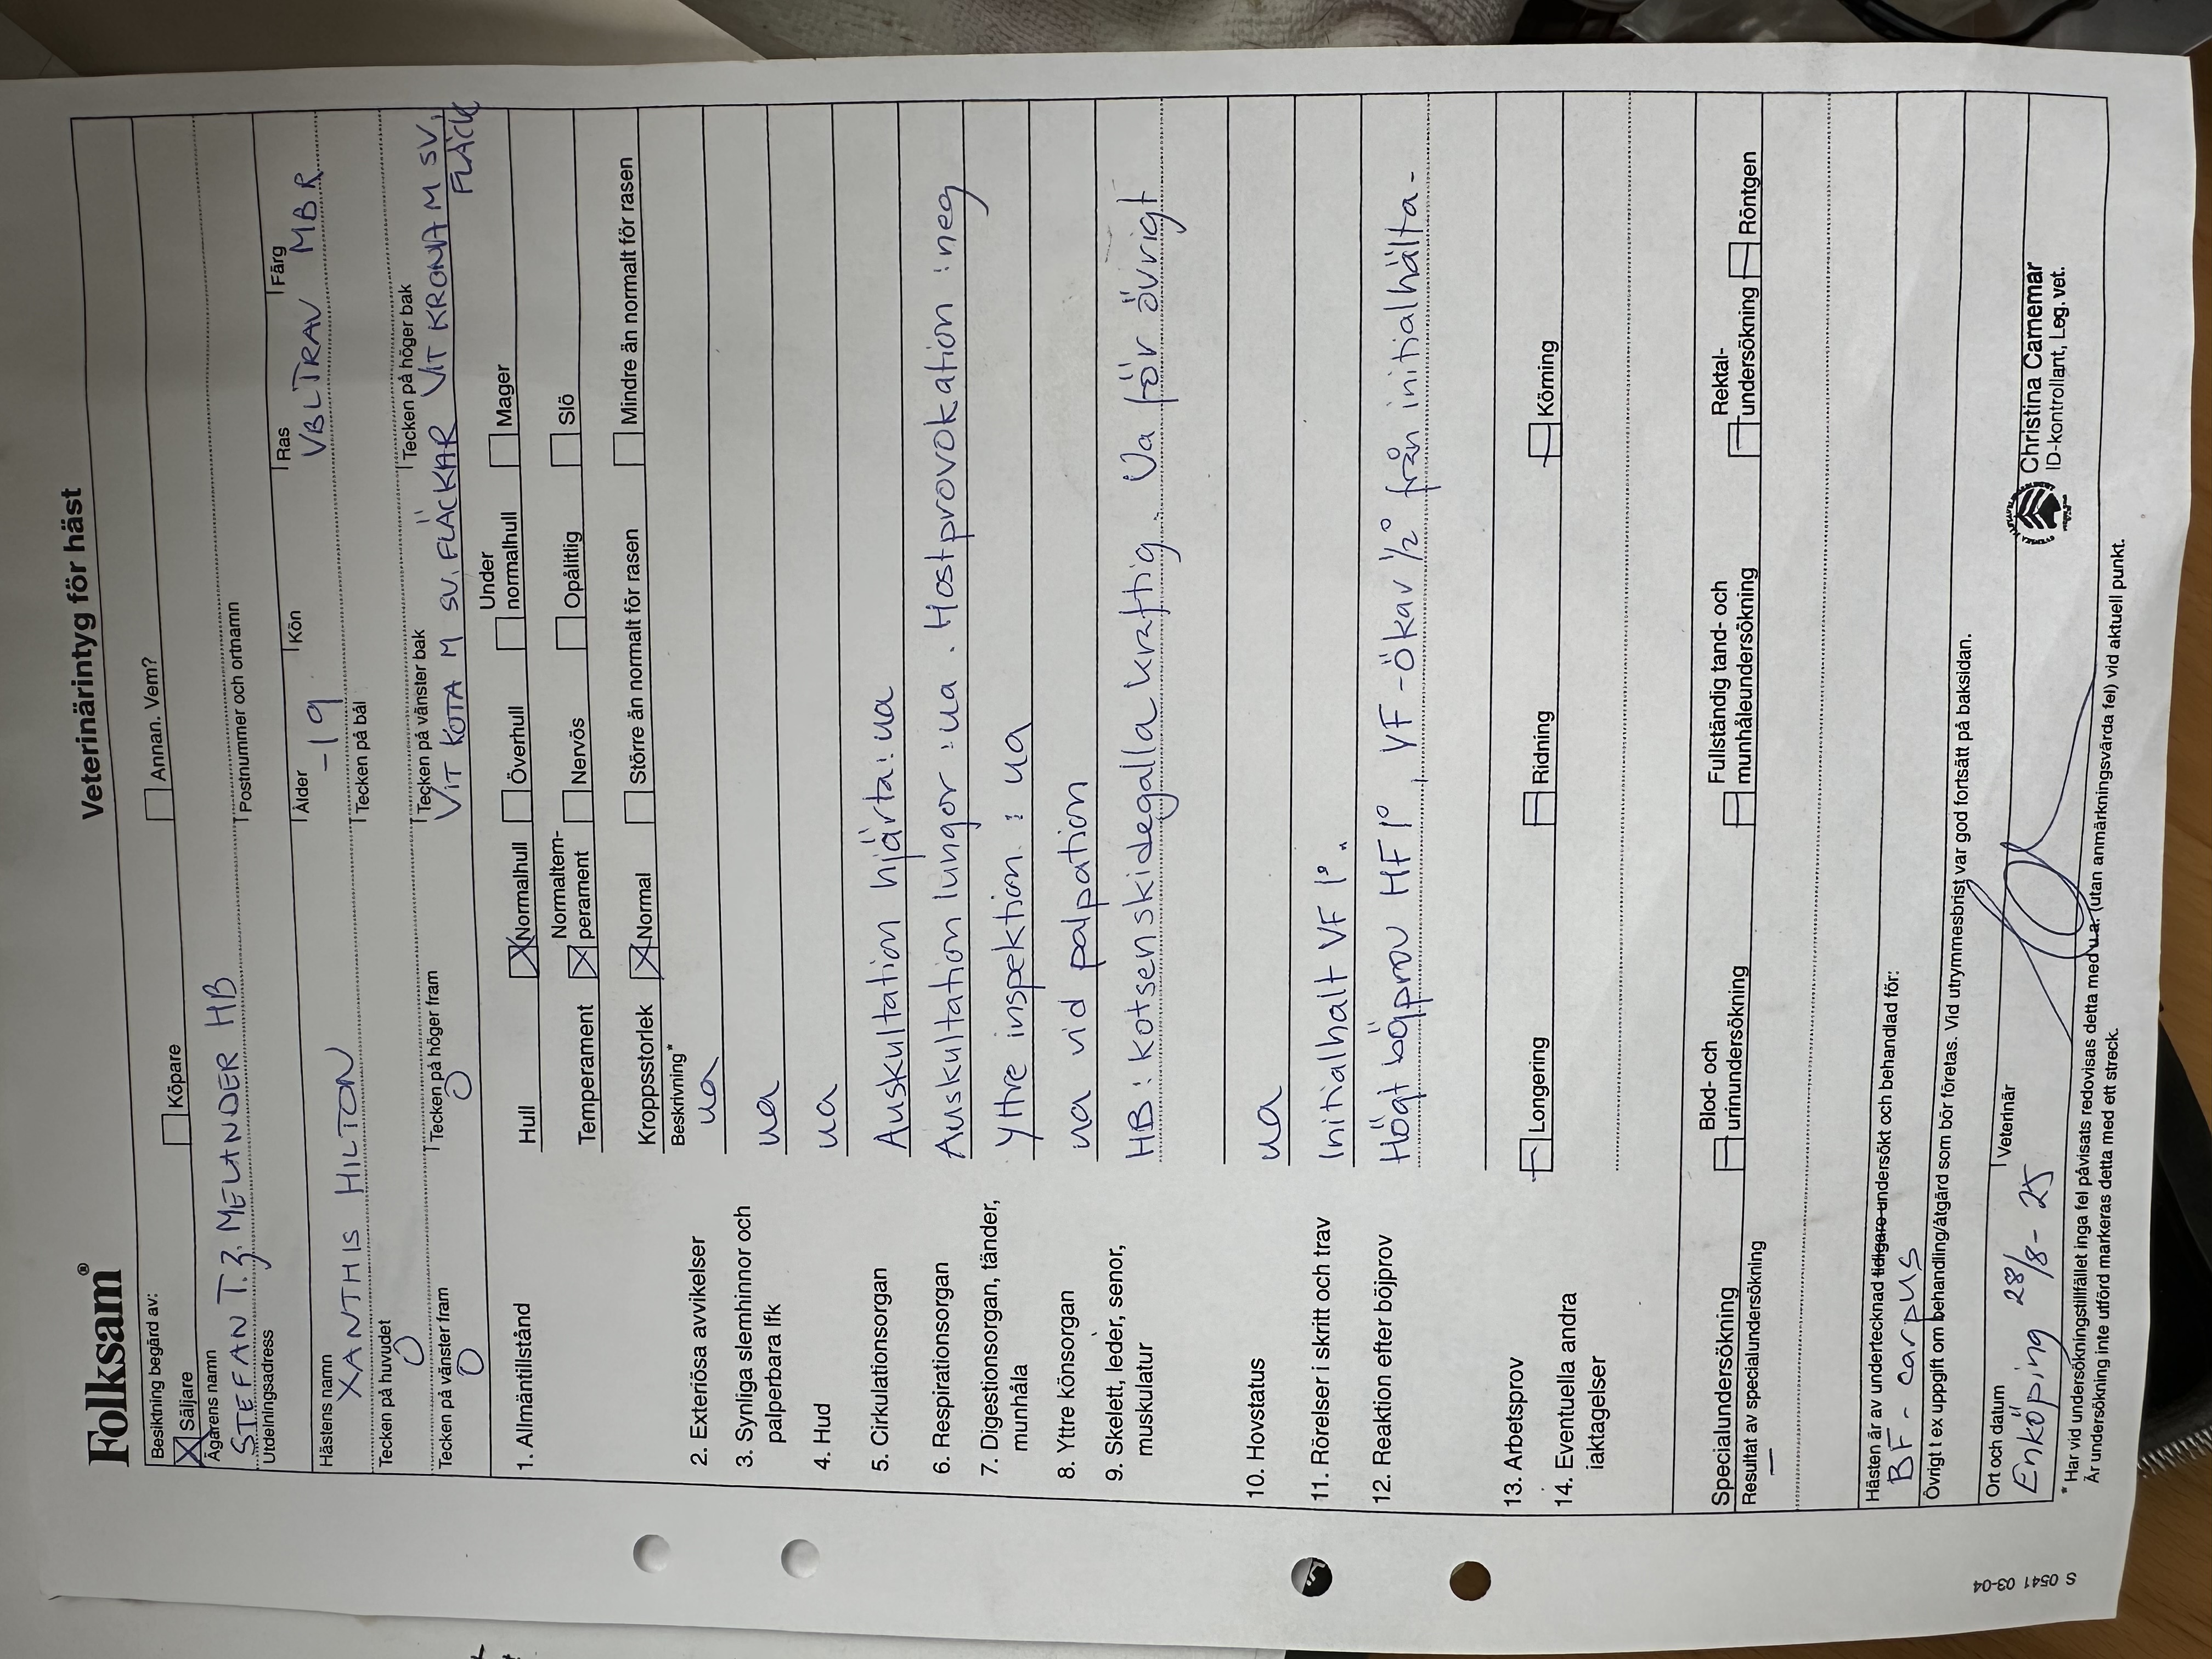 Folksam®
Veterinärintyg för häst
Besiktning begärd av:
Säljare Köpare Annan. Vem?
Ägarens namn
STEFAN T.Z. MELANDER HB
Utdelningsadress Postnummer och ortnamn
Hästens namn Ålder Kön Ras Färg
XANTHIS HILTON -19 VBLTRAV MBR
Tecken på huvudet Tecken på bål
O
Tecken på vänster fram Tecken på höger fram Tecken på vänster bak Tecken på höger bak
O O VIT KOTA M SV. FLÄCKAR VIT KRONA M SV.
FLÄCK
1. Allmäntillstånd Hull Normalhull Överhull Under normalhull Mager
Temperament Normaltem-perament Nervös Opålitlig Slö
Kroppsstorlek Normal Större än normalt för rasen Mindre än normalt för rasen
Beskrivning*
2. Exteriösa avvikelser ua
3. Synliga slemhinnor och ua
palperbara lfk
4. Hud ua
5. Cirkulationsorgan Auskultation hjärta: ua
6. Respirationsorgan Auskultation lungor: ua. Hostprovokation: neg
7. Digestionsorgan, tänder, Yttre inspektion: ua
munhåla
8. Yttre könsorgan ua vid palpation
9. Skelett, leder, senor, HB: kotsenskidegalla kraftig. Ua för övrigt
muskulatur
10. Hovstatus ua
11. Rörelser i skritt och trav Initialhalt VF 1°.
12. Reaktion efter böjprov Högt böjprov HF 1°, VF - Ökar 1/2° från initialhälta.
13. Arbetsprov Longering Ridning Körning
14. Eventuella andra
iaktagelser
Specialundersökning Blod- och urinundersökning Fullständig tand- och munhåleundersökning Rektal-undersökning Röntgen
Resultat av specialundersökning
–
Hästen är av undertecknad tidigare undersökt och behandlad för:
BF - carpus
Övrigt t ex uppgift om behandling/åtgärd som bör företas. Vid utrymmesbrist var god fortsätt på baksidan.
Ort och datum Veterinär
Enköping 28/8-25
Christina Carnemar
ID-kontrollant, Leg. vet.
* Har vid undersökningstillfället inga fel påvisats redovisas detta med u.a. (utan anmärkningsvärda fel) vid aktuell punkt.
Är undersökning inte utförd markeras detta med ett streck.
S 0541 03-04